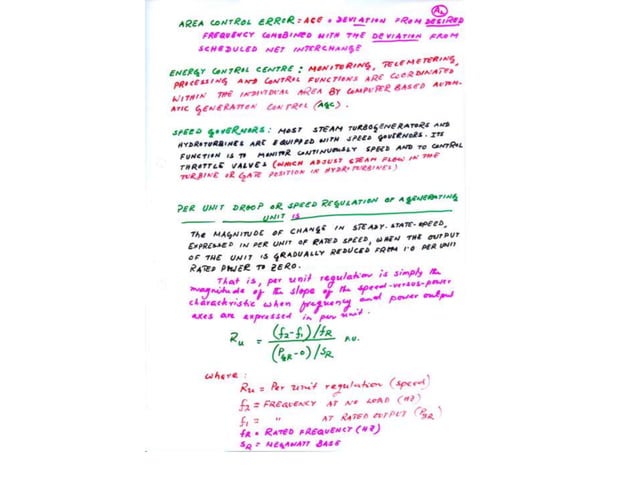 A2
AREA CONTROL ERROR: ACE = DEVIATION FROM DESIRED
FREQUENCY COMBINED WITH THE DEVIATION FROM
SCHEDULED NET INTERCHANGE
ENERGY CONTROL CENTRE: MONITORING, TELEMETERING,
PROCESSING AND CONTROL FUNCTIONS ARE COORDINATED
WITHIN THE INDIVIDUAL AREA BY COMPUTER BASED AUTOM-
ATIC GENERATION CONTROL (AGC).
SPEED GOVERNORS: MOST STEAM TURBOGENERATORS AND
HYDROTURBINES ARE EQUIPPED WITH SPEED GOVERNORS. ITS
FUNCTION IS TO MONITOR CONTINUOUSLY SPEED AND TO CONTROL
THROTTLE VALVES (WHICH ADJUST STEAM FLOW IN THE
TURBINE OR GATE POSITION IN HYDROTURBINES)
PER UNIT DROOP OR SPEED REGULATION OF A GENERATING
UNIT IS
THE MAGNITUDE OF CHANGE IN STEADY-STATE-SPEED,
EXPRESSED IN PER UNIT OF RATED SPEED, WHEN THE OUTPUT
OF THE UNIT IS GRADUALLY REDUCED FROM 1.0 PER UNIT
RATED POWER TO ZERO.
That is, per unit regulation is simply the
magnitude of the slope of the speed-versus-power
characteristic when frequency and power output
axes are expressed in per unit.
Ru = (f2-f1)/fR / (PgR-0)/SR P.U.
where:
Ru = Per unit regulation (speed)
f2 = FREQUENCY AT NO LOAD (HZ)
f1 = " AT RATED OUTPUT (PgR)
fR = RATED FREQUENCY (HZ)
SR = MEGAWATT BASE